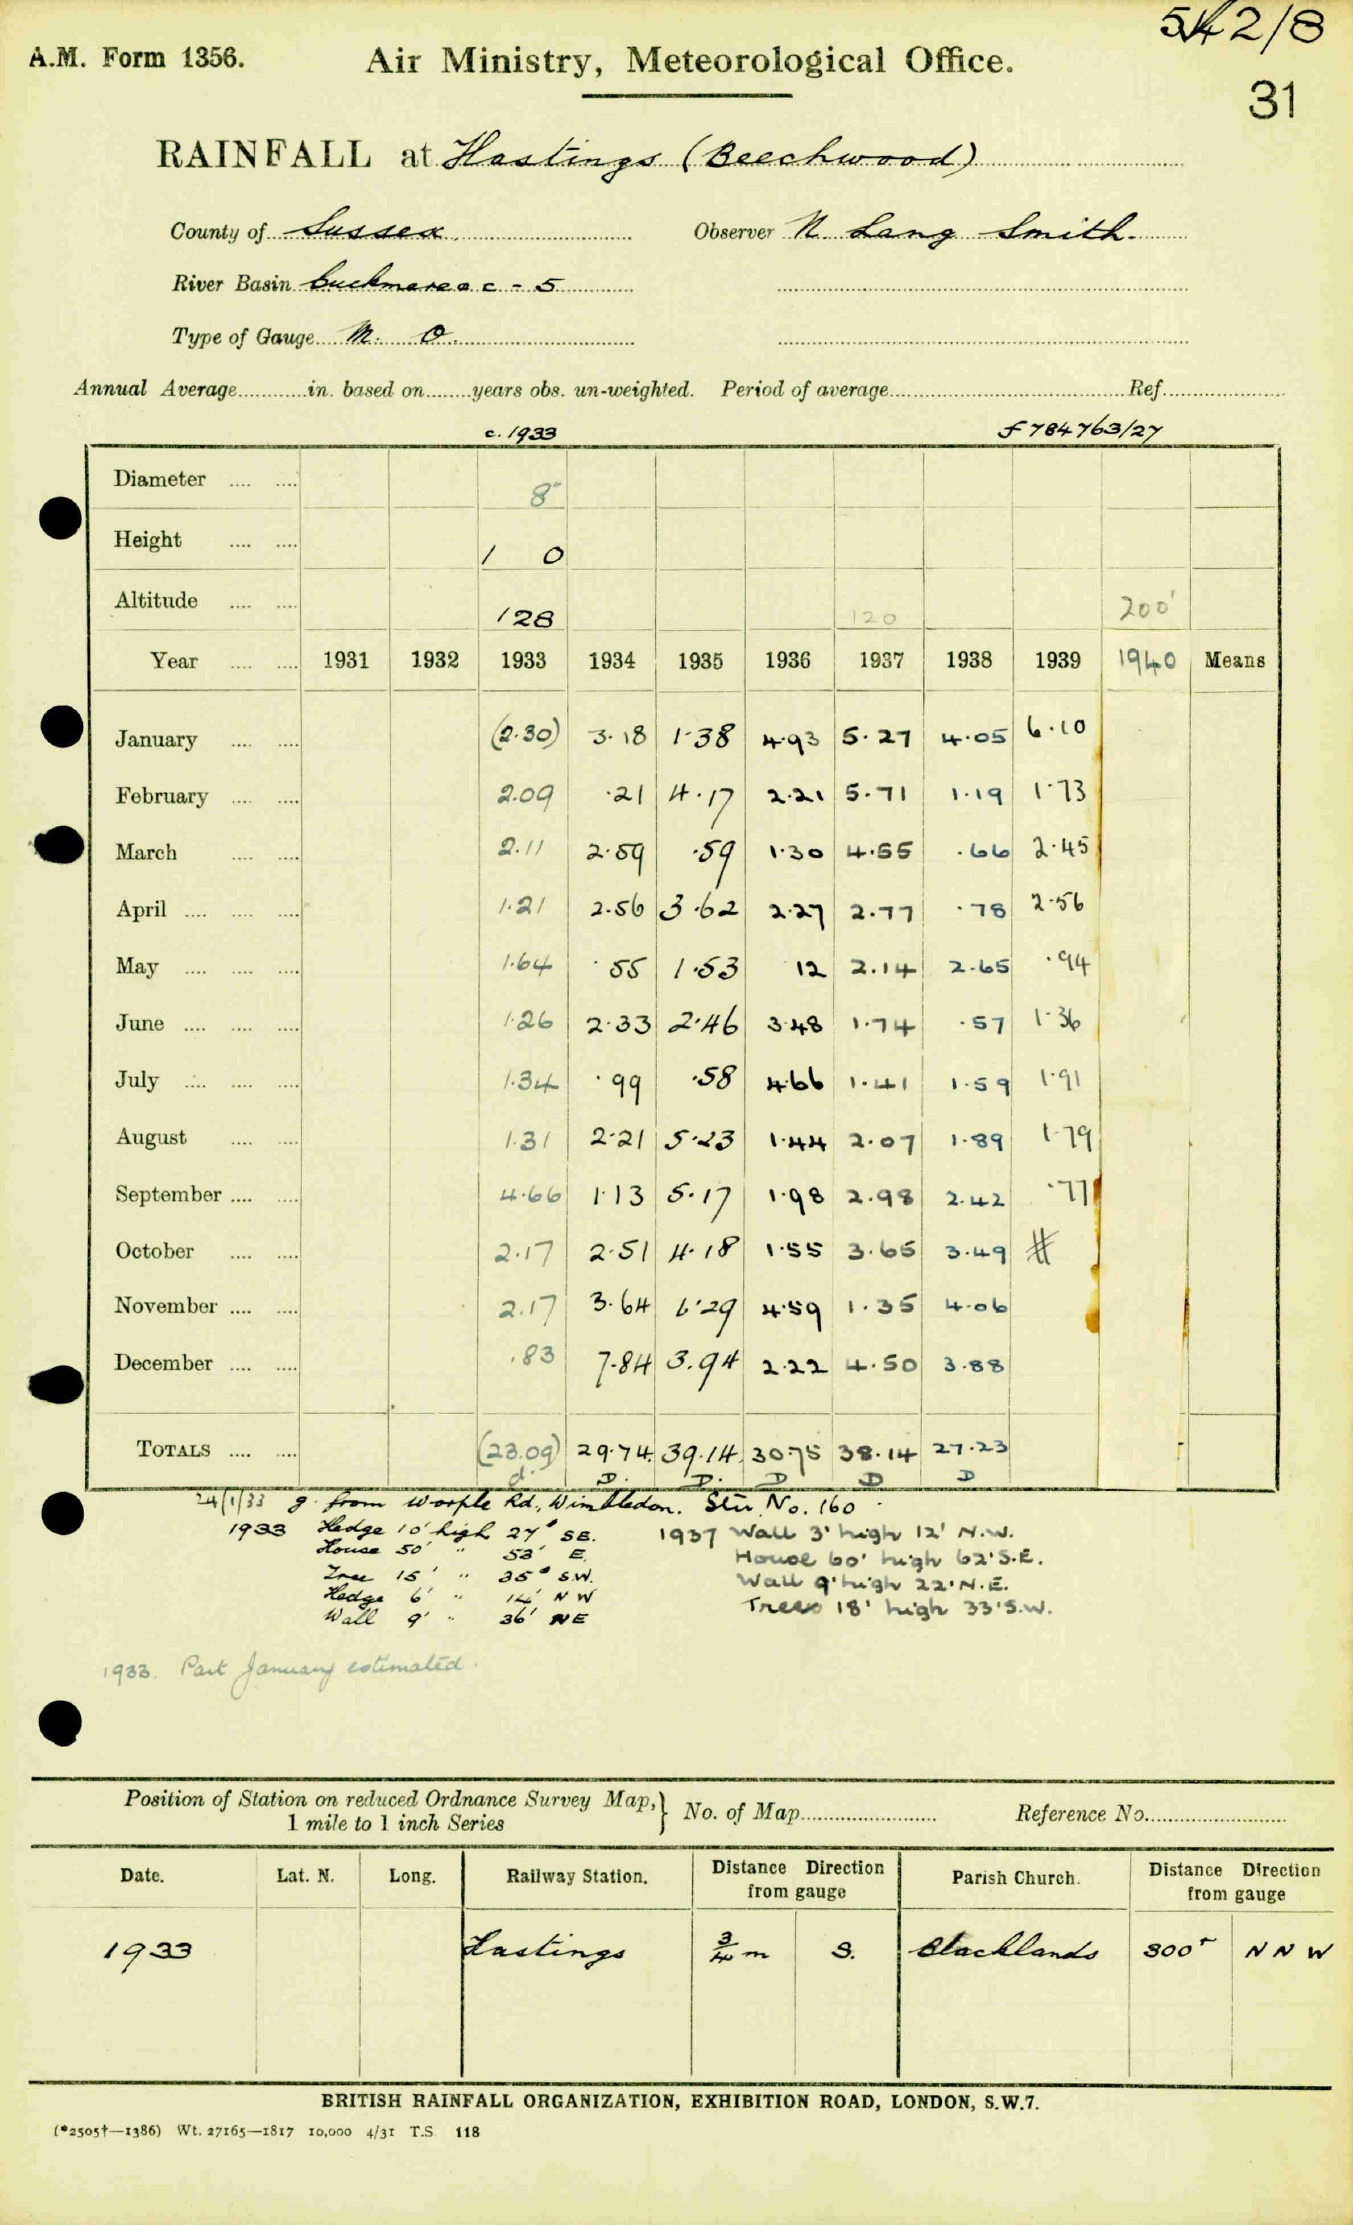 542/8
A.M. Form 1356.
Air Ministry, Meteorological Office.
31
RAINFALL at Hastings (Beechwood)
County of Sussex. Observer N. Lang Smith.
River Basin - 5
Type of Gauge M. O.
Annual Average in. based on years obs. un-weighted. Period of average Ref.
c. 1933 f 784763/27
Diameter 8"
Height 1 0
Altitude 128 120 200'
Year 1931 1932 1933 1934 1935 1936 1937 1938 1939 1940 Means
January (2.30) 3.18 1.38 4.93 5.27 4.05 6.10
February 2.09 .21 4.17 2.21 5.71 1.19 1.73
March 2.11 2.59 .59 1.30 4.55 .66 2.45
April 1.21 2.56 3.62 2.27 2.77 .78 2.56
May 1.64 .55 1.53 12 2.14 2.65 .94
June 1.26 2.33 2.46 3.48 1.74 .57 1.36
July 1.34 .99 .58 4.66 1.41 1.59 1.91
August 1.31 2.21 5.23 1.44 2.07 1.89 1.79
September 4.66 1.13 5.17 1.98 2.98 2.42 .77
October 2.17 2.51 4.18 1.55 3.65 3.49 #
November 2.17 3.64 6.29 4.59 1.35 4.06
December .83 7.84 3.94 2.22 4.50 3.88
TOTALS (23.09) 29.74 39.14 30.75 38.14 27.23
d. D. D. D D D
24/1/33 g. from Worple Rd., Wimbledon. Stn No. 160
1933 Hedge 10' high 27' SE. 1937 Wall 3' high 12' N.W.
House 50' " 53' E. House 60' high 62' S.E.
Tree 15' " 35' S.W. Wall 9' high 22' N.E.
Hedge 6' " 14' N W Trees 18' high 33' S.W.
Wall 9' " 36' NE
1933. Part January estimated.
Position of Station on reduced Ordnance Survey Map,
1 mile to 1 inch Series } No. of Map Reference No.
Date. Lat. N. Long. Railway Station. Distance Direction from gauge Parish Church. Distance Direction from gauge
1933 Hastings 3/4 m S. Blacklands 300 N N W
BRITISH RAINFALL ORGANIZATION, EXHIBITION ROAD, LONDON, S.W.7.
(*2505†—1386) Wt. 27165—1817 10,000 4/31 T.S. 118